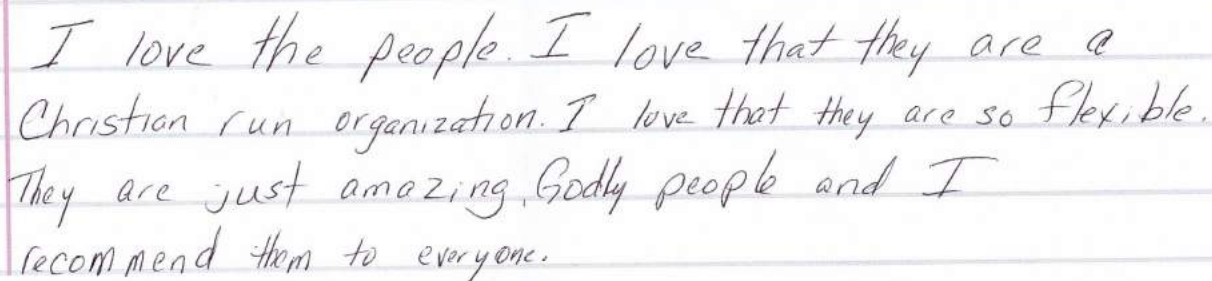 I love the people. I love that they are a
Christian run organization. I love that they are so flexible.
They are just amazing, Godly people and I
recommend them to everyone.